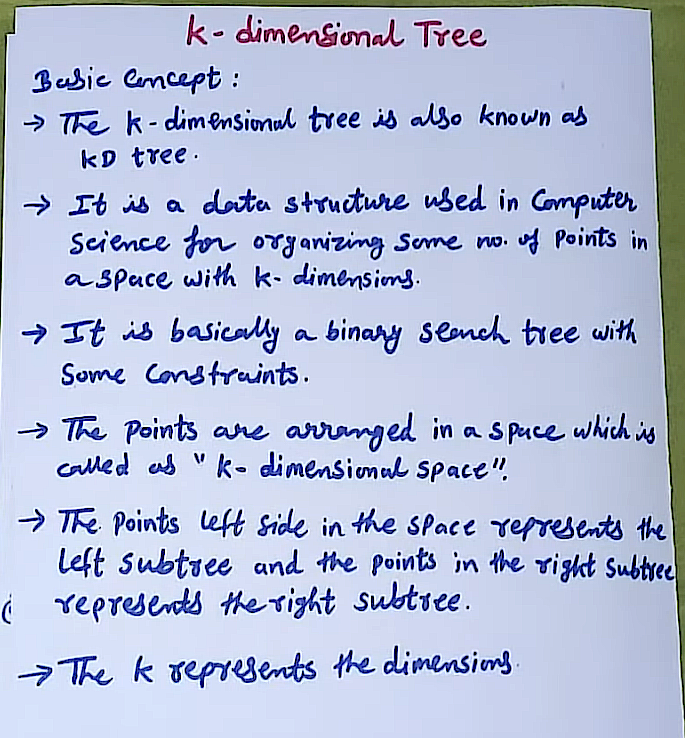 k - dimensional Tree
Basic Concept :
→ The k - dimensional tree is also known as
KD tree.
→ It is a data structure used in Computer
Science for organizing some no. of Points in
a space with k- dimensions.
→ It is basically a binary search tree with
Some Constraints.
→ The Points are arranged in a space which is
called as " k- dimensional space".
→ The Points left side in the space represents the
left subtree and the points in the right subtree
represents the right subtree.
→ The k represents the dimensions.